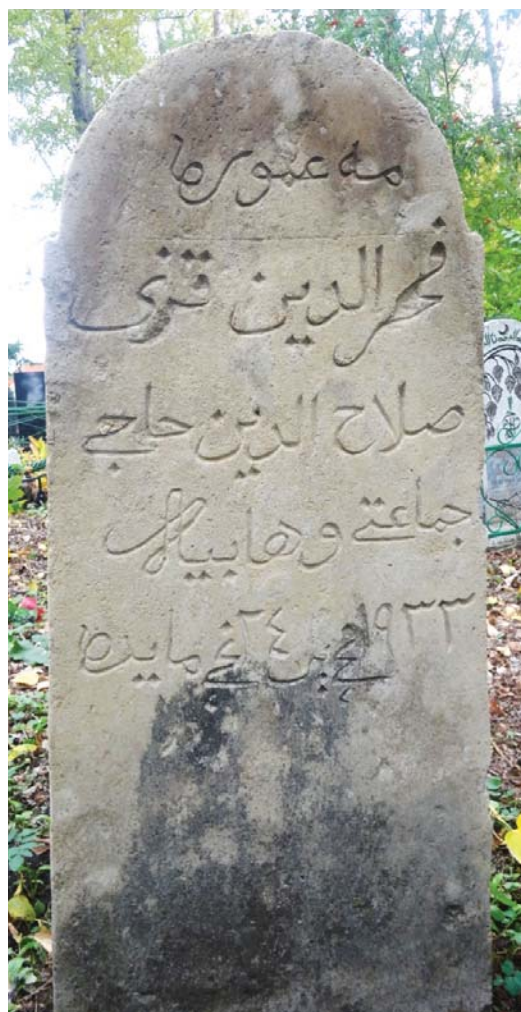 مه عموره
فخر الدين قزى
صلاح الدين حاجے
جماعتے وهابيه
١٩٣٣ نچے ٢٤ نچے مايده